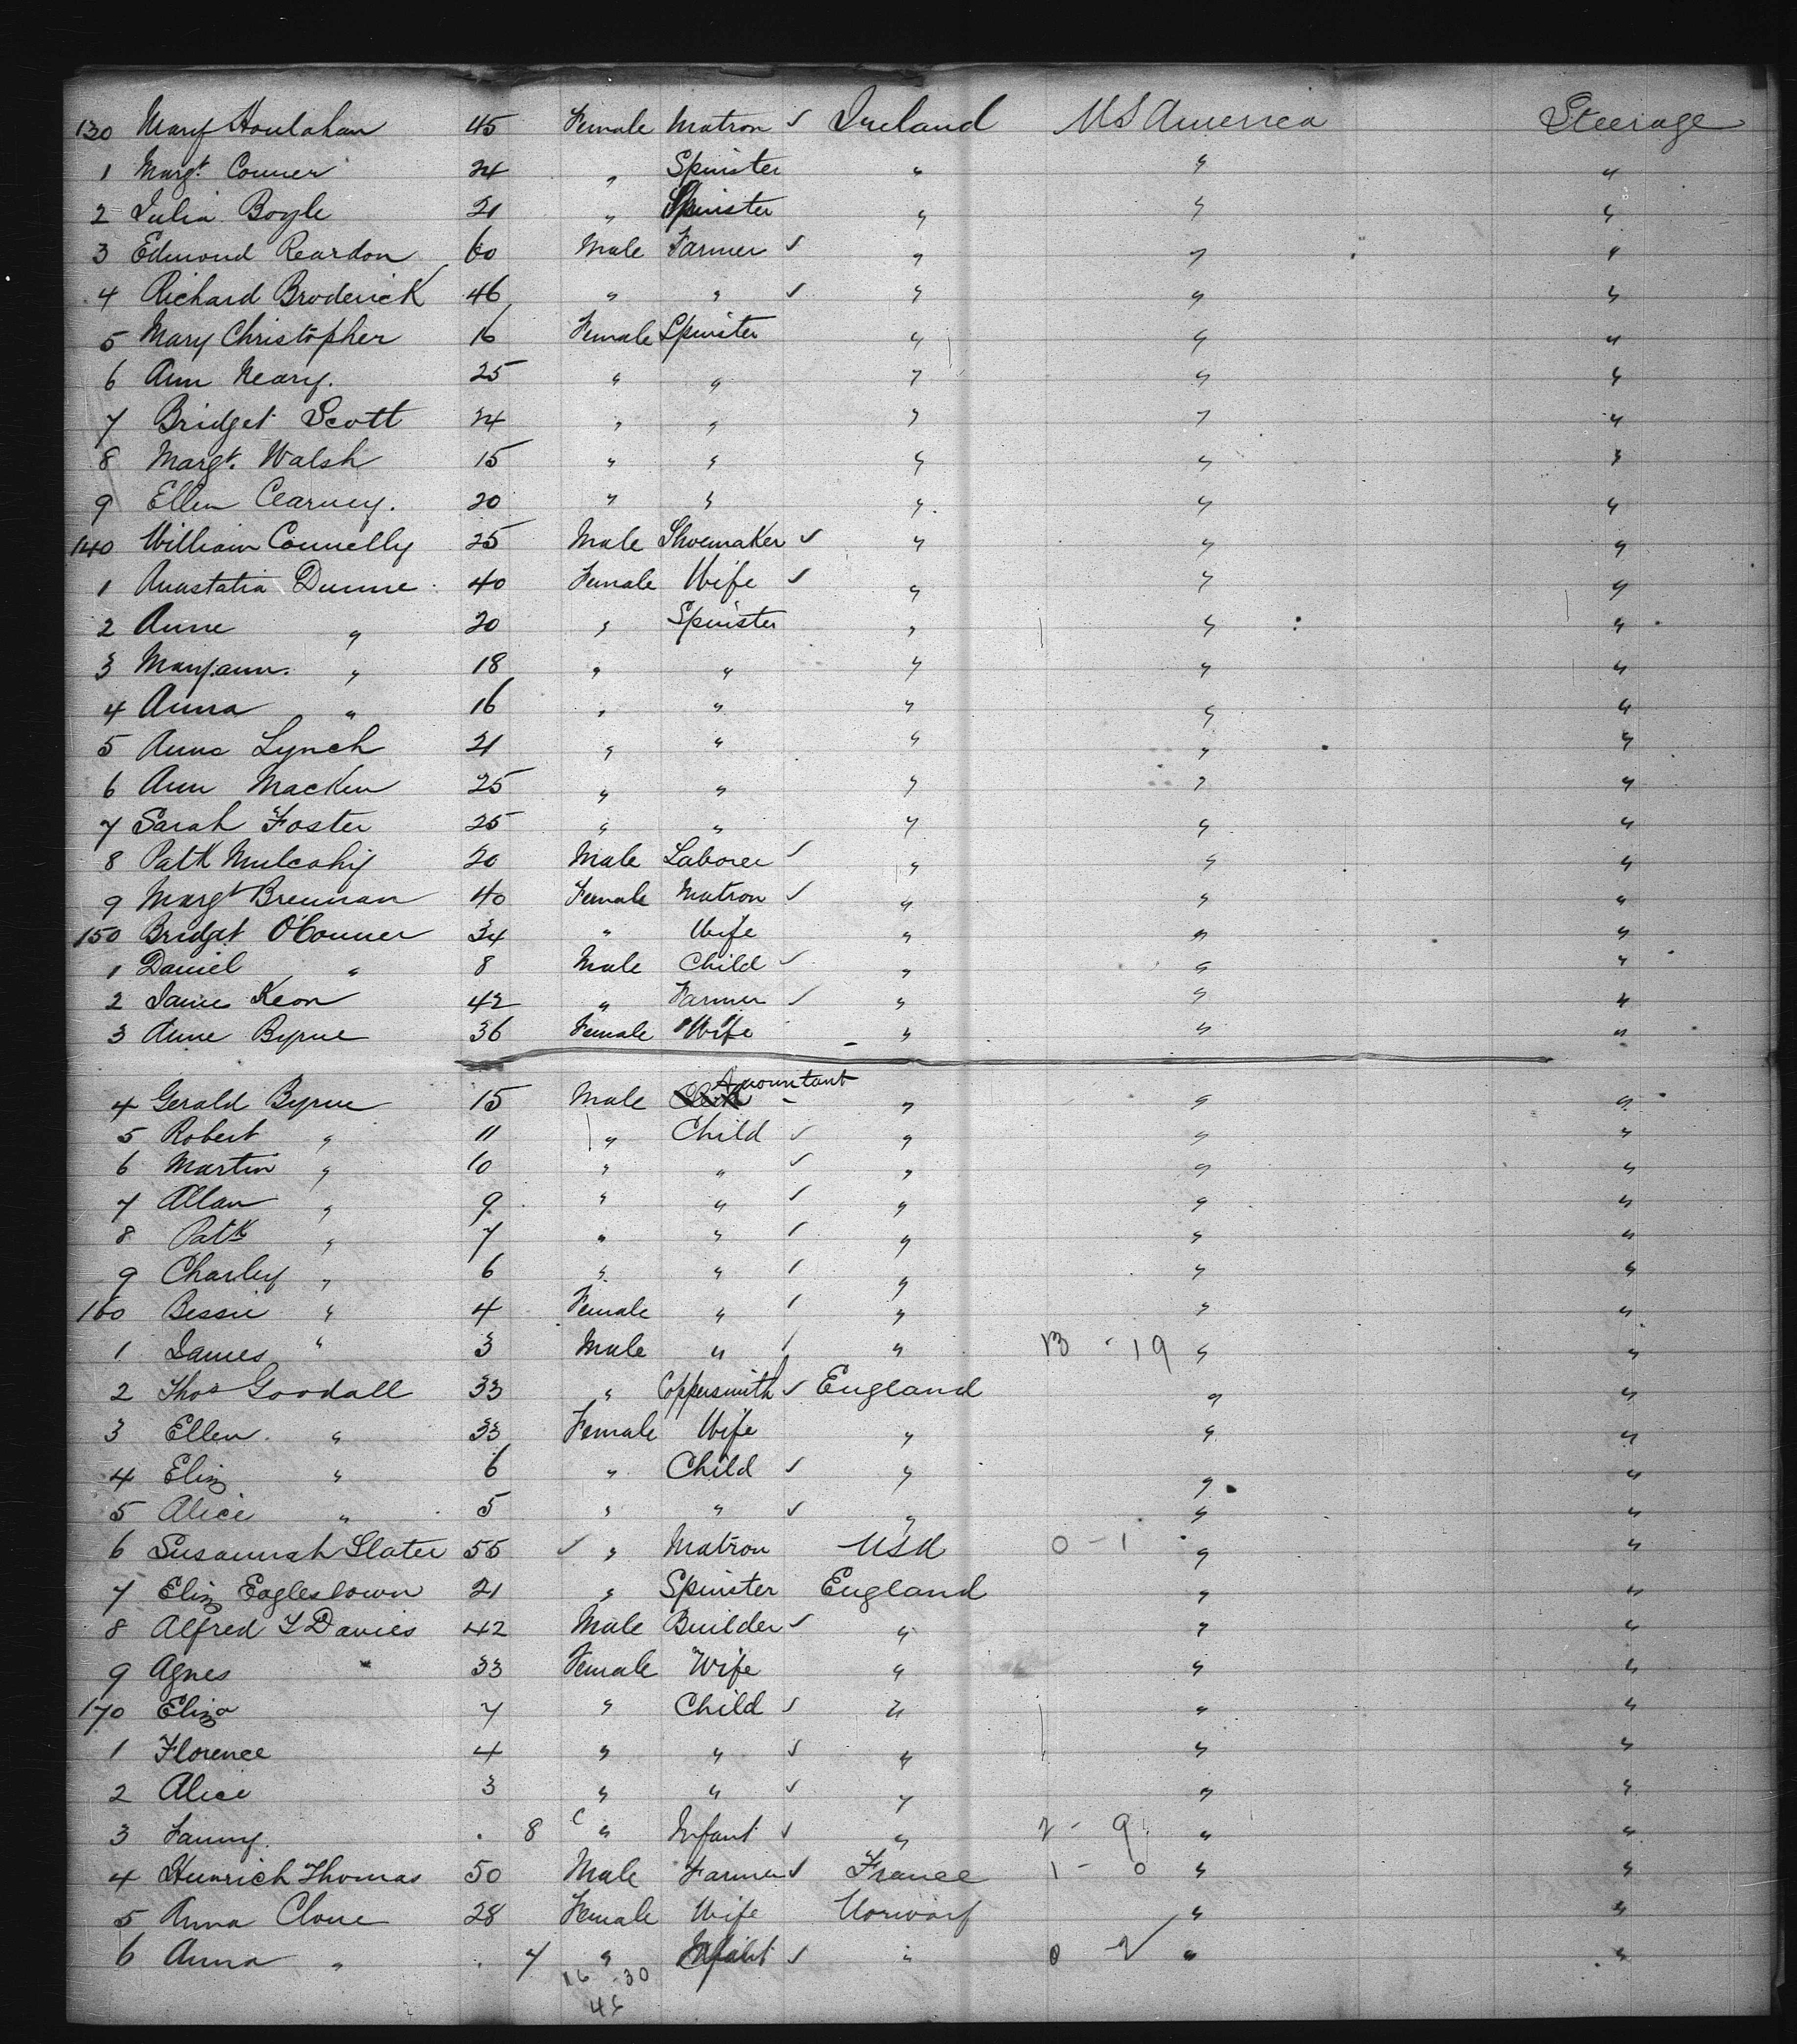 130 Mary Houlahan 45 Female Matron ✓ Ireland US America Steerage
1 Margt. Conner 24 " Spinster " " "
2 Julia Boyle 21 " Spinster " " "
3 Edmond Reardon 60 Male Farmer ✓ " " "
4 Richard Broderick 46 " " ✓ " " "
5 Mary Christopher 16 Female Spinster " " "
6 Ann Neary. 25 " " " " "
7 Bridget Scott 24 " " " " "
8 Margt. Walsh 15 " " " " "
9 Ellen Clarney. 20 " " " " "
140 William Connelly 25 Male Shoemaker ✓ " " "
1 Anastatia Dunne 40 Female Wife ✓ " " "
2 Anne " 20 " Spinster " " "
3 Maryann. " 18 " " " " "
4 Anna " 16 " " " " "
5 Anna Lynch 21 " " " " "
6 Ann Macken 25 " " " " "
7 Sarah Foster 25 " " " " "
8 Patk Mulcahy 20 Male Laborer ✓ " " "
9 Margt Brennan 40 Female Matron ✓ " " "
150 Bridget O'Conner 34 " Wife " " "
1 Daniel " 8 Male Child ✓ " " "
2 Keon 42 " Farmer ✓ " " "
3 Anne Byrne 36 Female "Wife " " "
4 Gerald Byrne 15 Male Accountant " " "
5 Robert " 11 " Child ✓ " " "
6 Martin " 10 " " ✓ " " "
7 Allan " 9 " " ✓ " " "
8 Patk " 7 " " ✓ " " "
9 Charley " 6 " " ✓ " " "
160 Bessie " 4 Female " ✓ " " "
1 James " 3 Male " ✓ " 13 - 19 " "
2 Thos Goodall 33 " Coppersmith ✓ England " "
3 Ellen " 33 Female Wife " " "
4 Eliz " 6 " Child ✓ " " "
5 Alice " 5 " " ✓ " " "
6 Susannah Slater 55 ✓ " Matron USA 0 - 1 " "
7 Eliz Eaglestown 21 " Spinster England " "
8 Alfred Davies 42 Male Builder ✓ " " "
9 Agnes " 33 Female Wife " " "
170 Eliza 7 " Child ✓ " " "
1 Florence 4 " " ✓ " " "
2 Alice 3 " " ✓ " " "
3 Fanny. 8 " Infant ✓ " 2 - 9 " "
4 Heinrich Thomas 50 Male Farmer ✓ France 1 - 0 " "
5 Anna Clove 28 Female Wife Norway " "
6 Anna " 7 " Infant ✓ " 0 - 2 " "
16 - 30
46